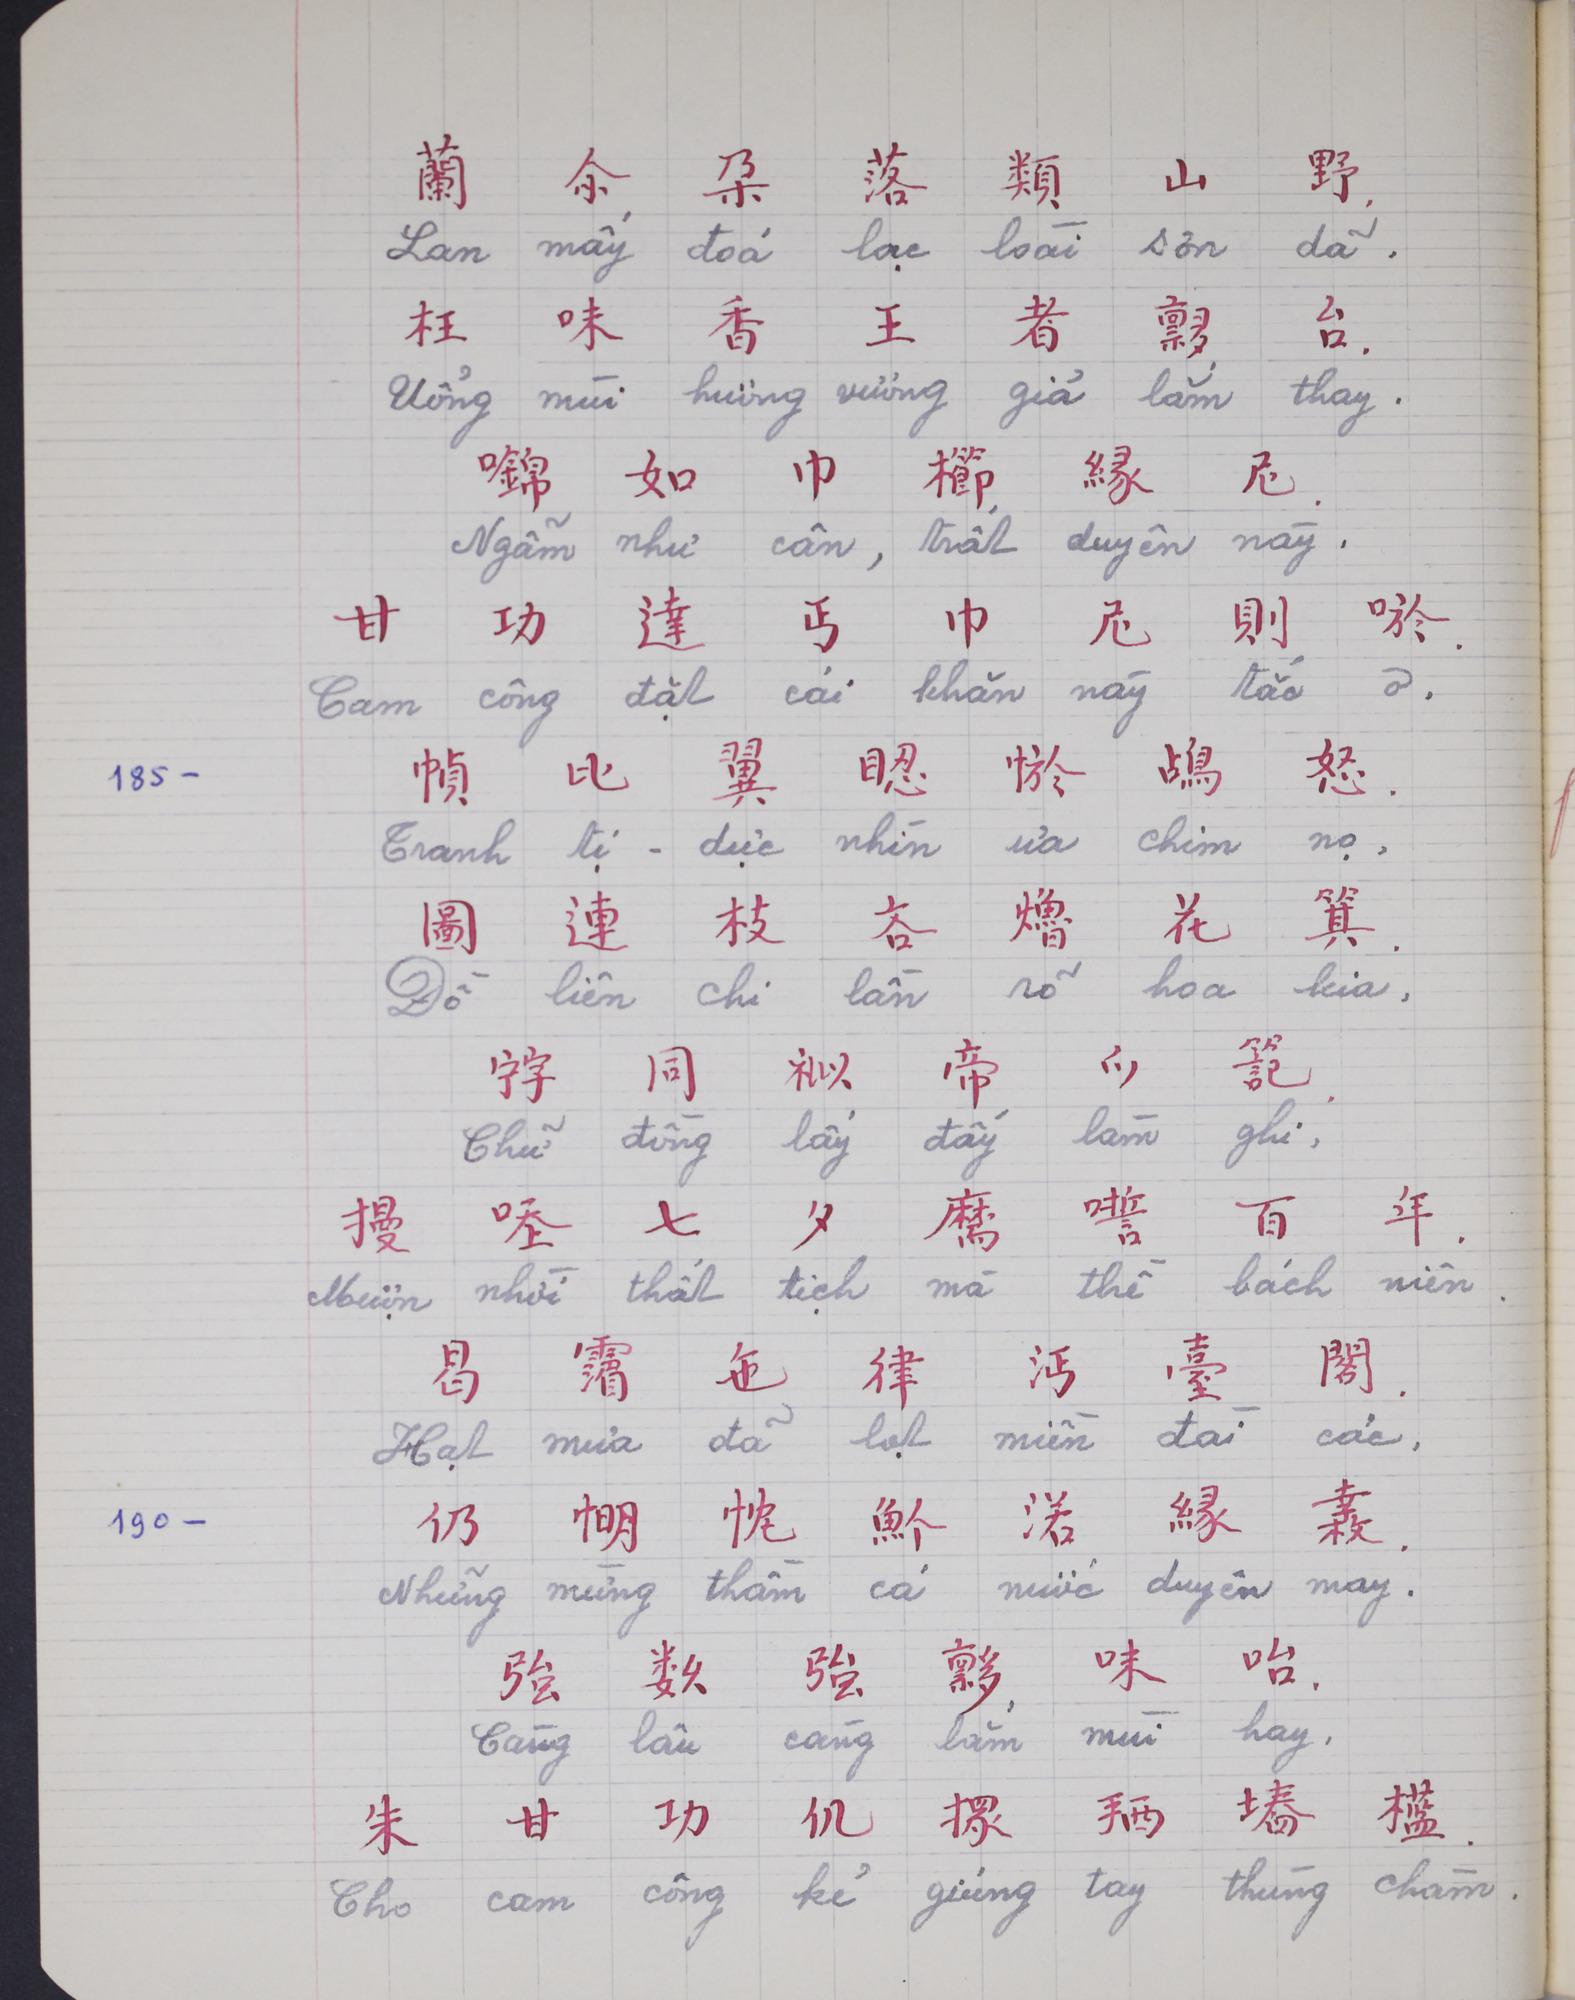 蘭 尒 朶 落 類 山 野.
Lan mấy đoá lạc loài sơn dã.
枉 味 香 王 者 台.
Uổng mùi hương vương giả lắm thay.
如 巾 櫛 緣 尼.
Ngẫm như cân, trất duyên này.
甘 功 達 丐 巾 尼 則 唹.
Cam công đặt cái khăn này tắc ở.
185 - 幀 比 翼 䀡 怒.
Tranh tị - dực nhìn ưa chim nọ,
圖 連 枝 吝 花 箕.
Đồ liền chi lần rõ hoa kia,
同 帝 篦.
Chữ đồng lấy đấy làm ghi,
擾 七 夕 百 年.
Mượn nhời thất tịch mà thề bách niên.
曷 律 沔 臺 閣.
Hạt mưa đã lọt miền đài các,
190 - 仍 忱 渃 緣
Những mừng thầm cá nước duyên may.
強 数 強 味 咍.
Càng lâu càng lắm mùi hay,
朱 甘 功 仉 檻.
Cho cam công kẻ gióng tay thùng chàm.